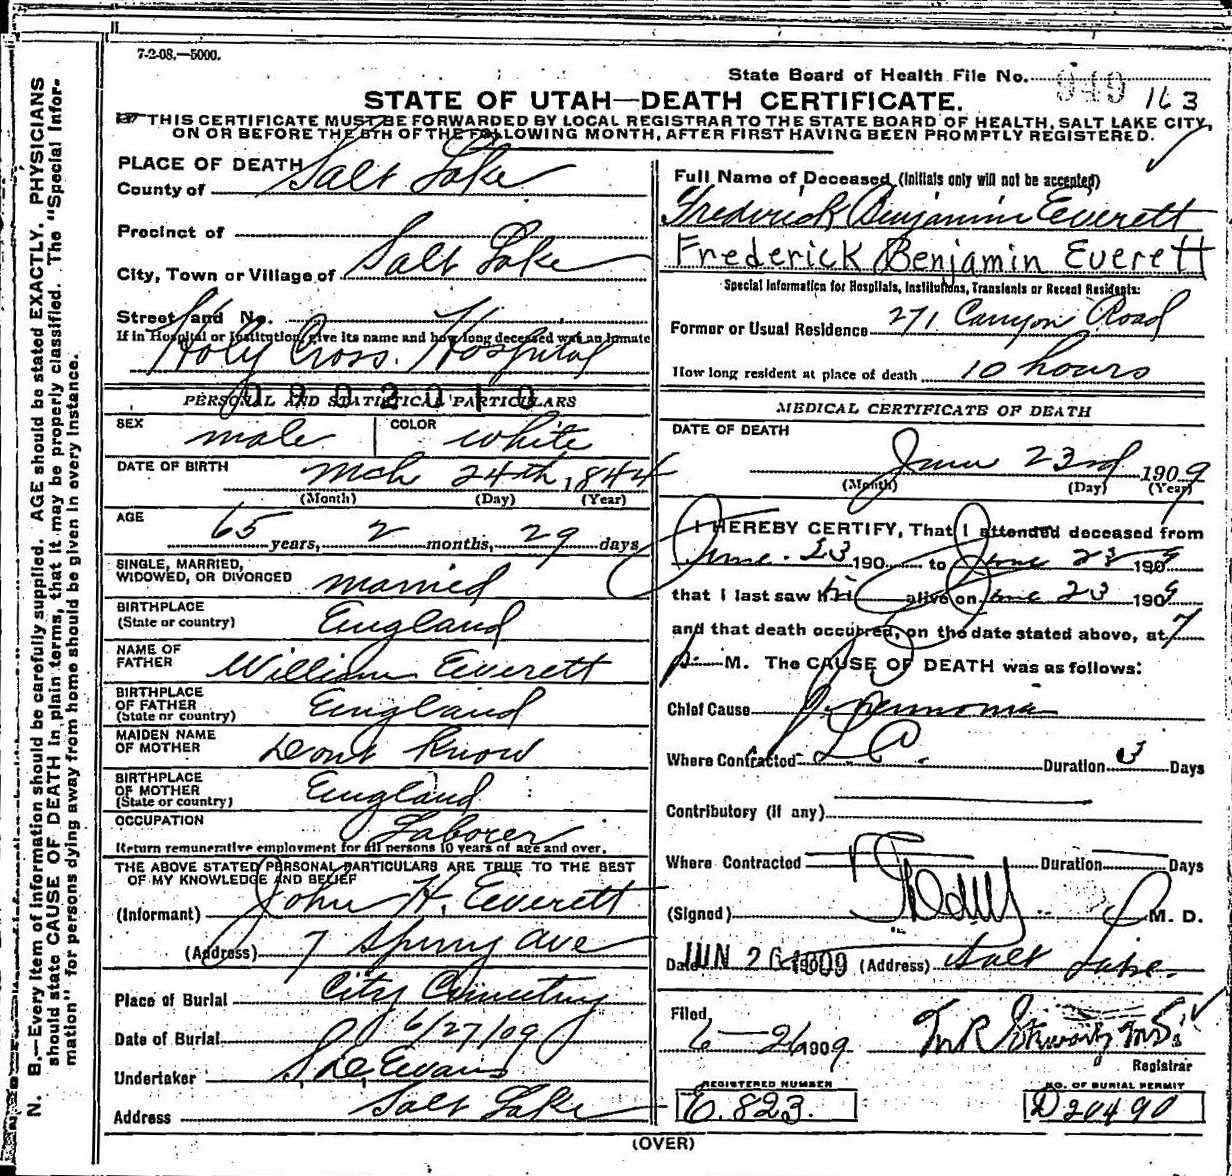 7-2-08.—5000.
State Board of Health File No. 949 163
STATE OF UTAH—DEATH CERTIFICATE.
THIS CERTIFICATE MUST BE FORWARDED BY LOCAL REGISTRAR TO THE STATE BOARD OF HEALTH, SALT LAKE CITY,
ON OR BEFORE THE 5TH OF THE FOLLOWING MONTH, AFTER FIRST HAVING BEEN PROMPTLY REGISTERED.
N. B.—Every item of information should be carefully supplied. AGE should be stated EXACTLY. PHYSICIANS
should state CAUSE OF DEATH in plain terms, that it may be properly classified. The "Special Infor-
mation" for persons dying away from home should be given in every instance.
PLACE OF DEATH
County of Salt Lake
Precinct of
City, Town or Village of Salt Lake
Street and No.
If in Hospital or Institution, give its name and how long deceased was an inmate
Holy Cross Hospital
0902010
PERSONAL AND STATISTICAL PARTICULARS
SEX male COLOR white
DATE OF BIRTH Mch 24th, 1844
(Month) (Day) (Year)
AGE
65 years, 2 months, 29 days
SINGLE, MARRIED,
WIDOWED, OR DIVORCED married
BIRTHPLACE
(State or country) England
NAME OF
FATHER William Everett
BIRTHPLACE
OF FATHER
(State or country) England
MAIDEN NAME
OF MOTHER Dont Know
BIRTHPLACE
OF MOTHER
(State or country) England
OCCUPATION Laborer
Return remunerative employment for all persons 10 years of age and over.
THE ABOVE STATED PERSONAL PARTICULARS ARE TRUE TO THE BEST
OF MY KNOWLEDGE AND BELIEF
(Informant) John H. Everett
(Address) 7 Sperry Ave
Place of Burial City Cemetery
Date of Burial 6/27/09
Undertaker Evans
Address Salt Lake
Full Name of Deceased (Initials only will not be accepted)
Frederick Benjamin Everett
Frederick Benjamin Everett
Special Information for Hospitals, Institutions, Transients or Recent Residents:
Former or Usual Residence 271 Canyon Road
How long resident at place of death 10 hours
MEDICAL CERTIFICATE OF DEATH
DATE OF DEATH
June 23rd 1909
(Month) (Day) (Year)
I HEREBY CERTIFY, That I attended deceased from
June 23 190 to June 23 1909
that I last saw him alive on June 23 1909
and that death occurred, on the date stated above, at 7
p. M. The CAUSE OF DEATH was as follows:
Chief Cause Pneumonia
Where Contracted Duration 3 Days
Contributory (if any)
Where Contracted Duration Days
(Signed) M. D.
Date JUN 26 1909 (Address) Salt Lake
Filed
6-26 1909
Registrar
REGISTERED NUMBER
E.823.
NO. OF BURIAL PERMIT
D20490
(OVER)